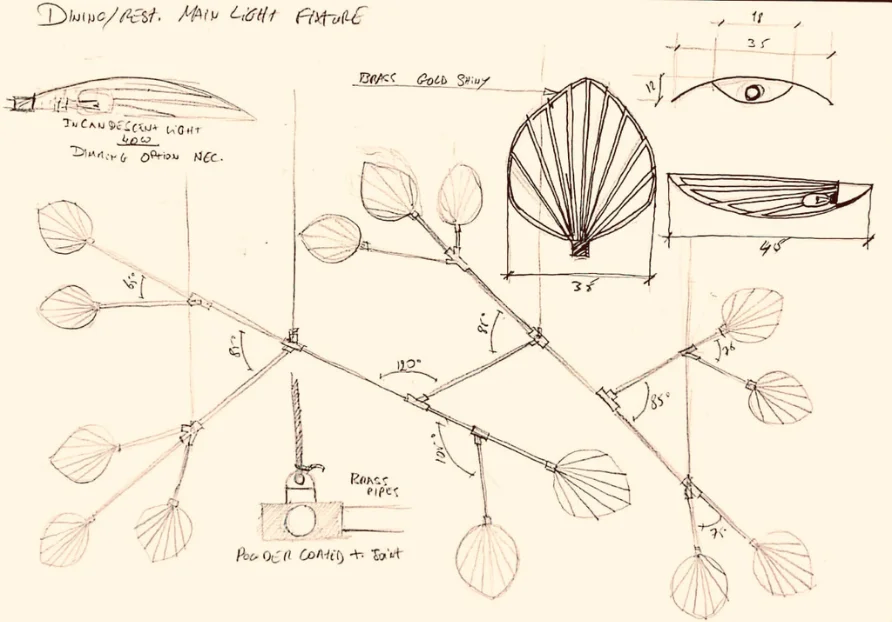 DINING/REST. MAIN LIGHT FIXTURE
18
35
BRASS GOLD SHINY
12
INCANDESCENT LIGHT
40W
DIMMING OPTION NEC.
45
35
85°
120°
85°
75°
BRASS
PIPES
POWDER COATED T JOINT